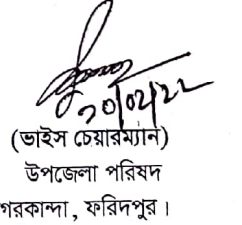 ২০/০২/২২
(ভাইস চেয়ারম্যান)
উপজেলা পরিষদ
গরকান্দা, ফরিদপুর।